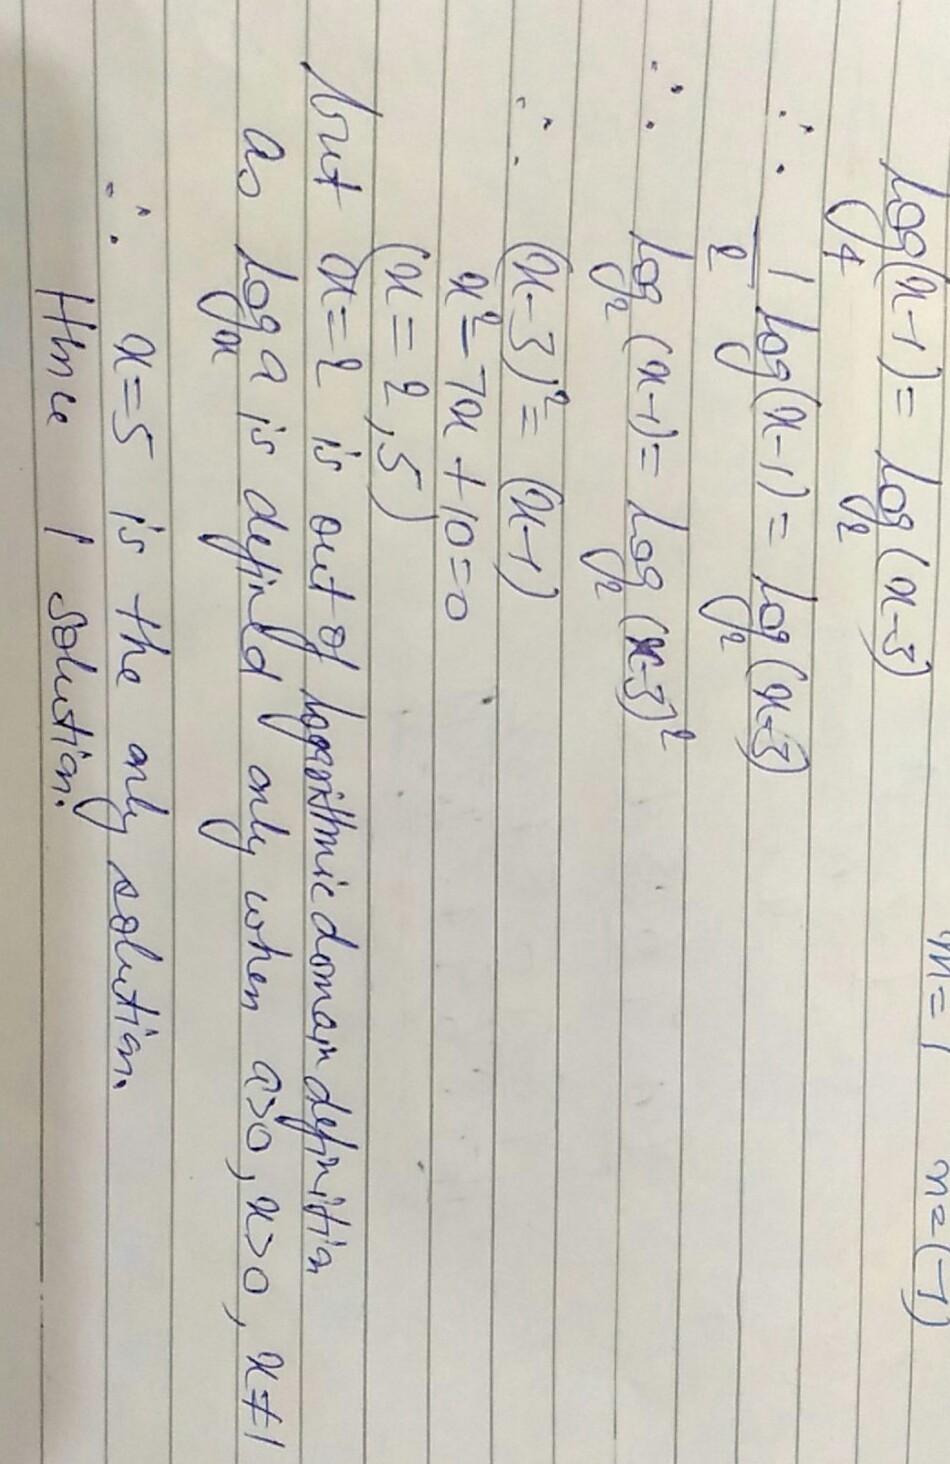 m=1 n=(-1)
log₄(x-1) = log₂(x-3)
∴ 1/2 log₂(x-1) = log₂(x-3)
∴ log₂(x-1) = log₂(x-3)²
∴ (x-3)² = (x-1)
x²-7x+10=0
(x=2,5)
but x=2 is out of logarithmic domain definition
as logₓ a is defined only when a>0, x>0, x≠1
∴ x=5 is the only solution.
Hence 1 solution.